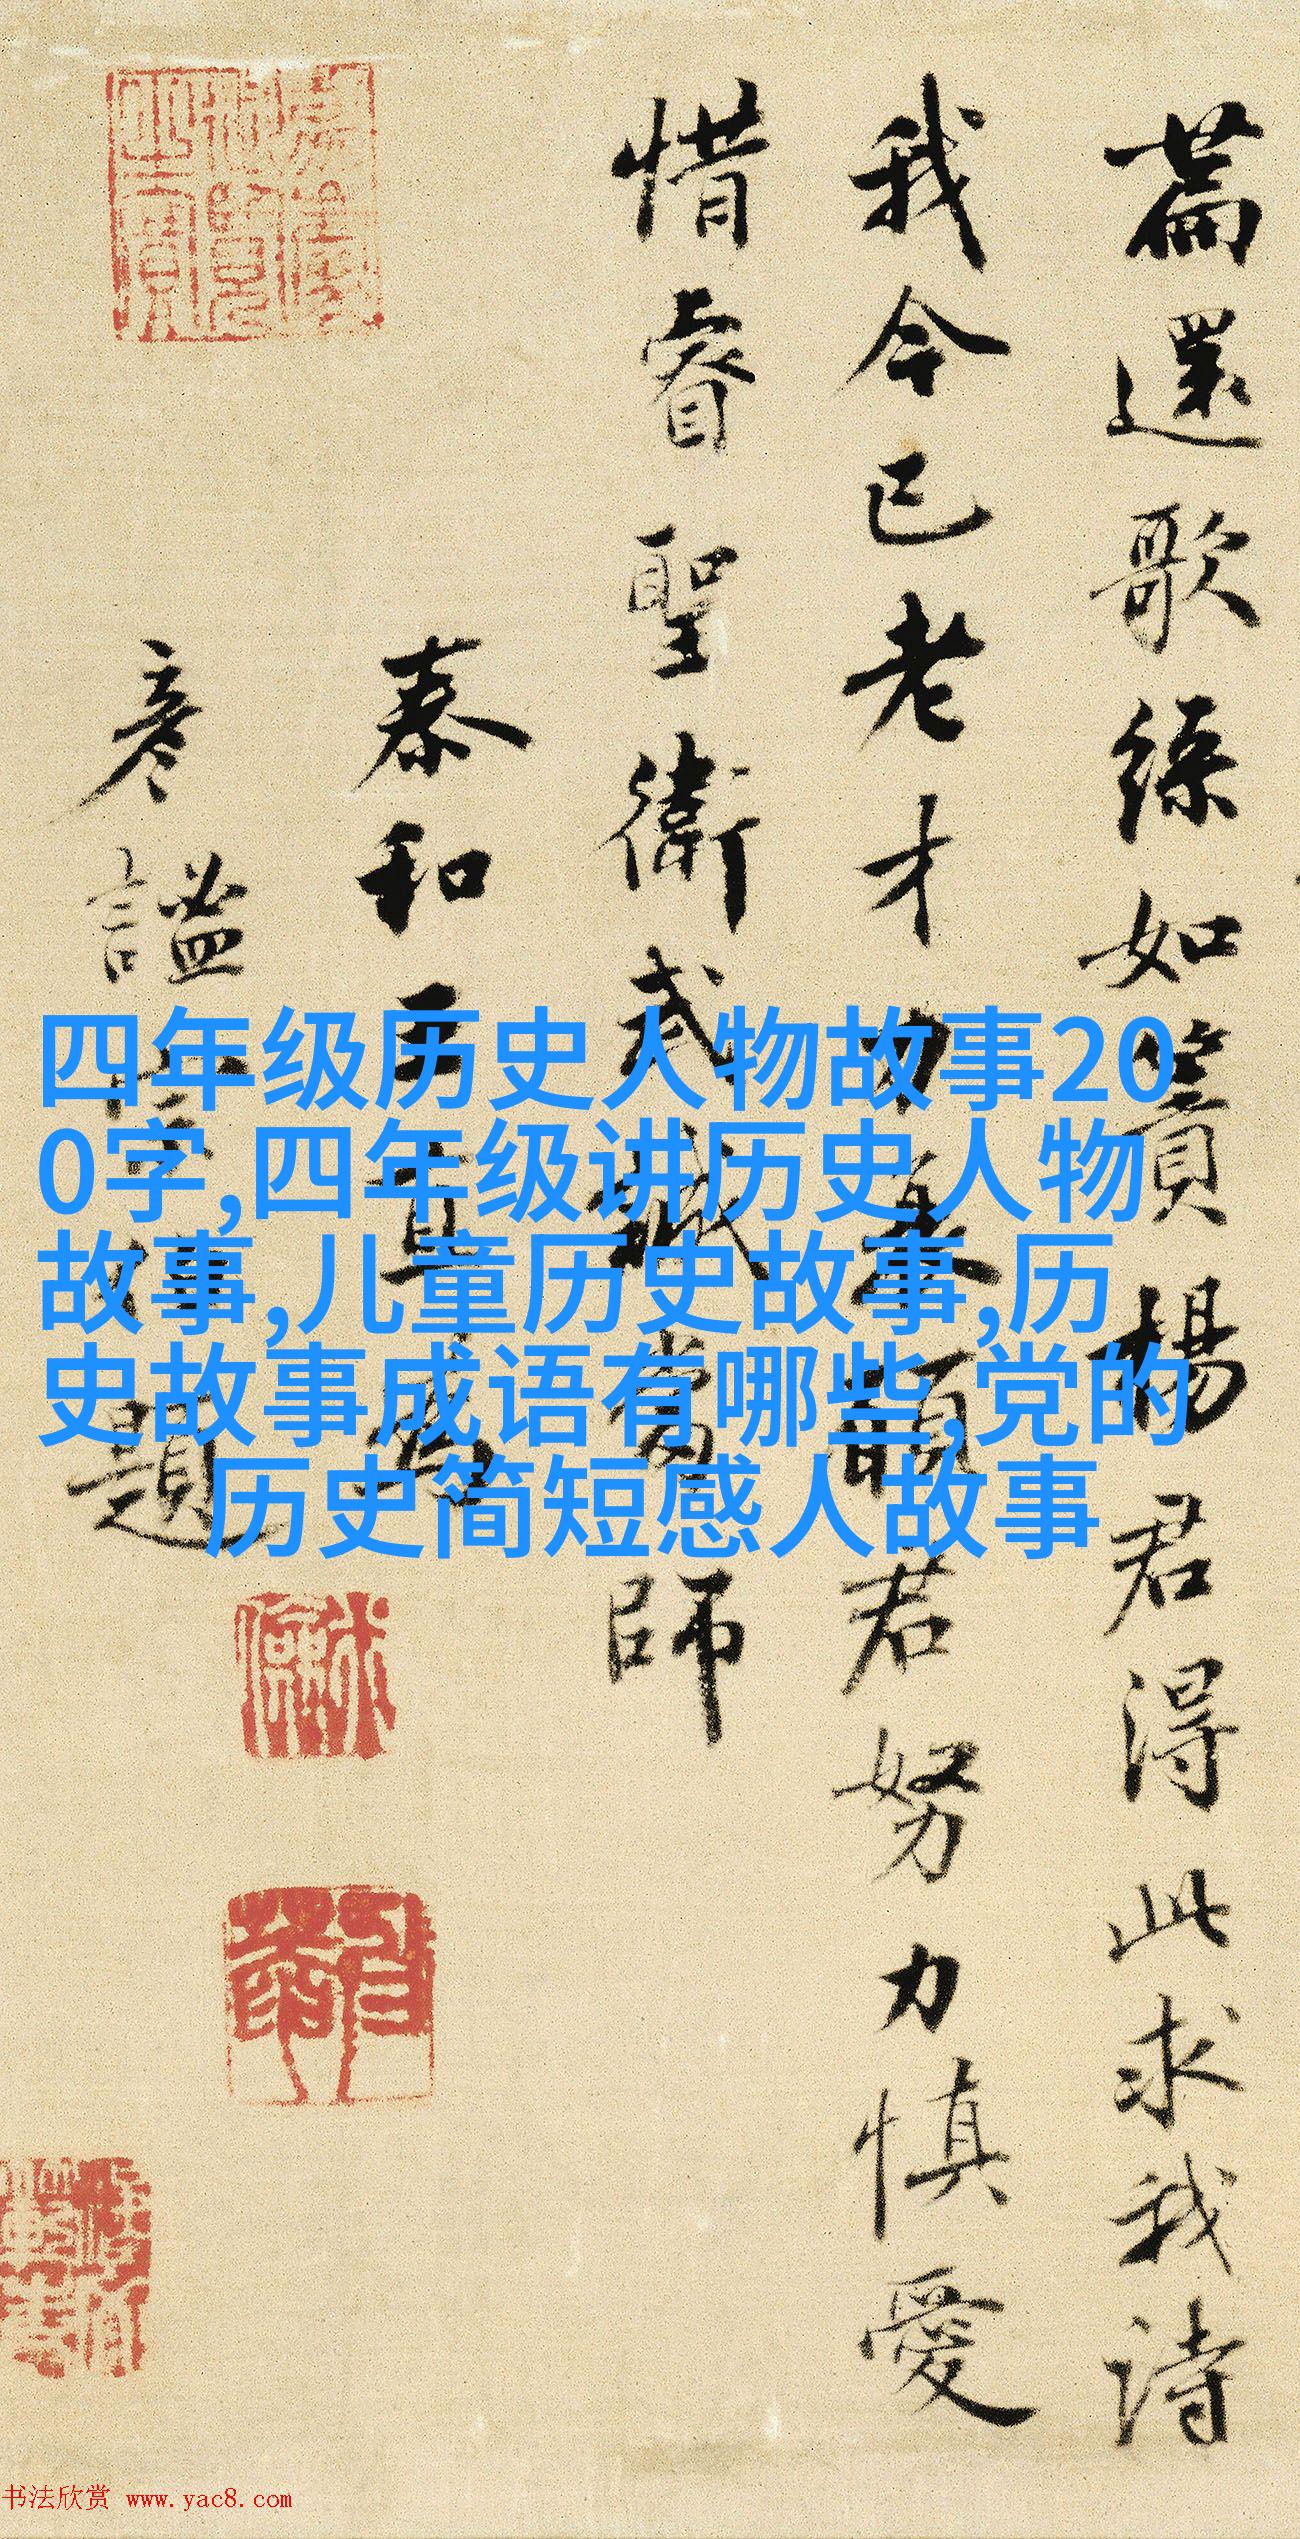 篇還歌綠如簀楊君得此求我詩
我今已老才力衰願君努力慎愛
惜睿聖衛武誠當師
泰和王直為
彥謐題
四年级历史人物故事20
0字,四年级讲历史人物
故事,儿童历史故事,历
史故事成语有哪些,党的
历史简短感人故事
书法欣赏 www.yac8.com